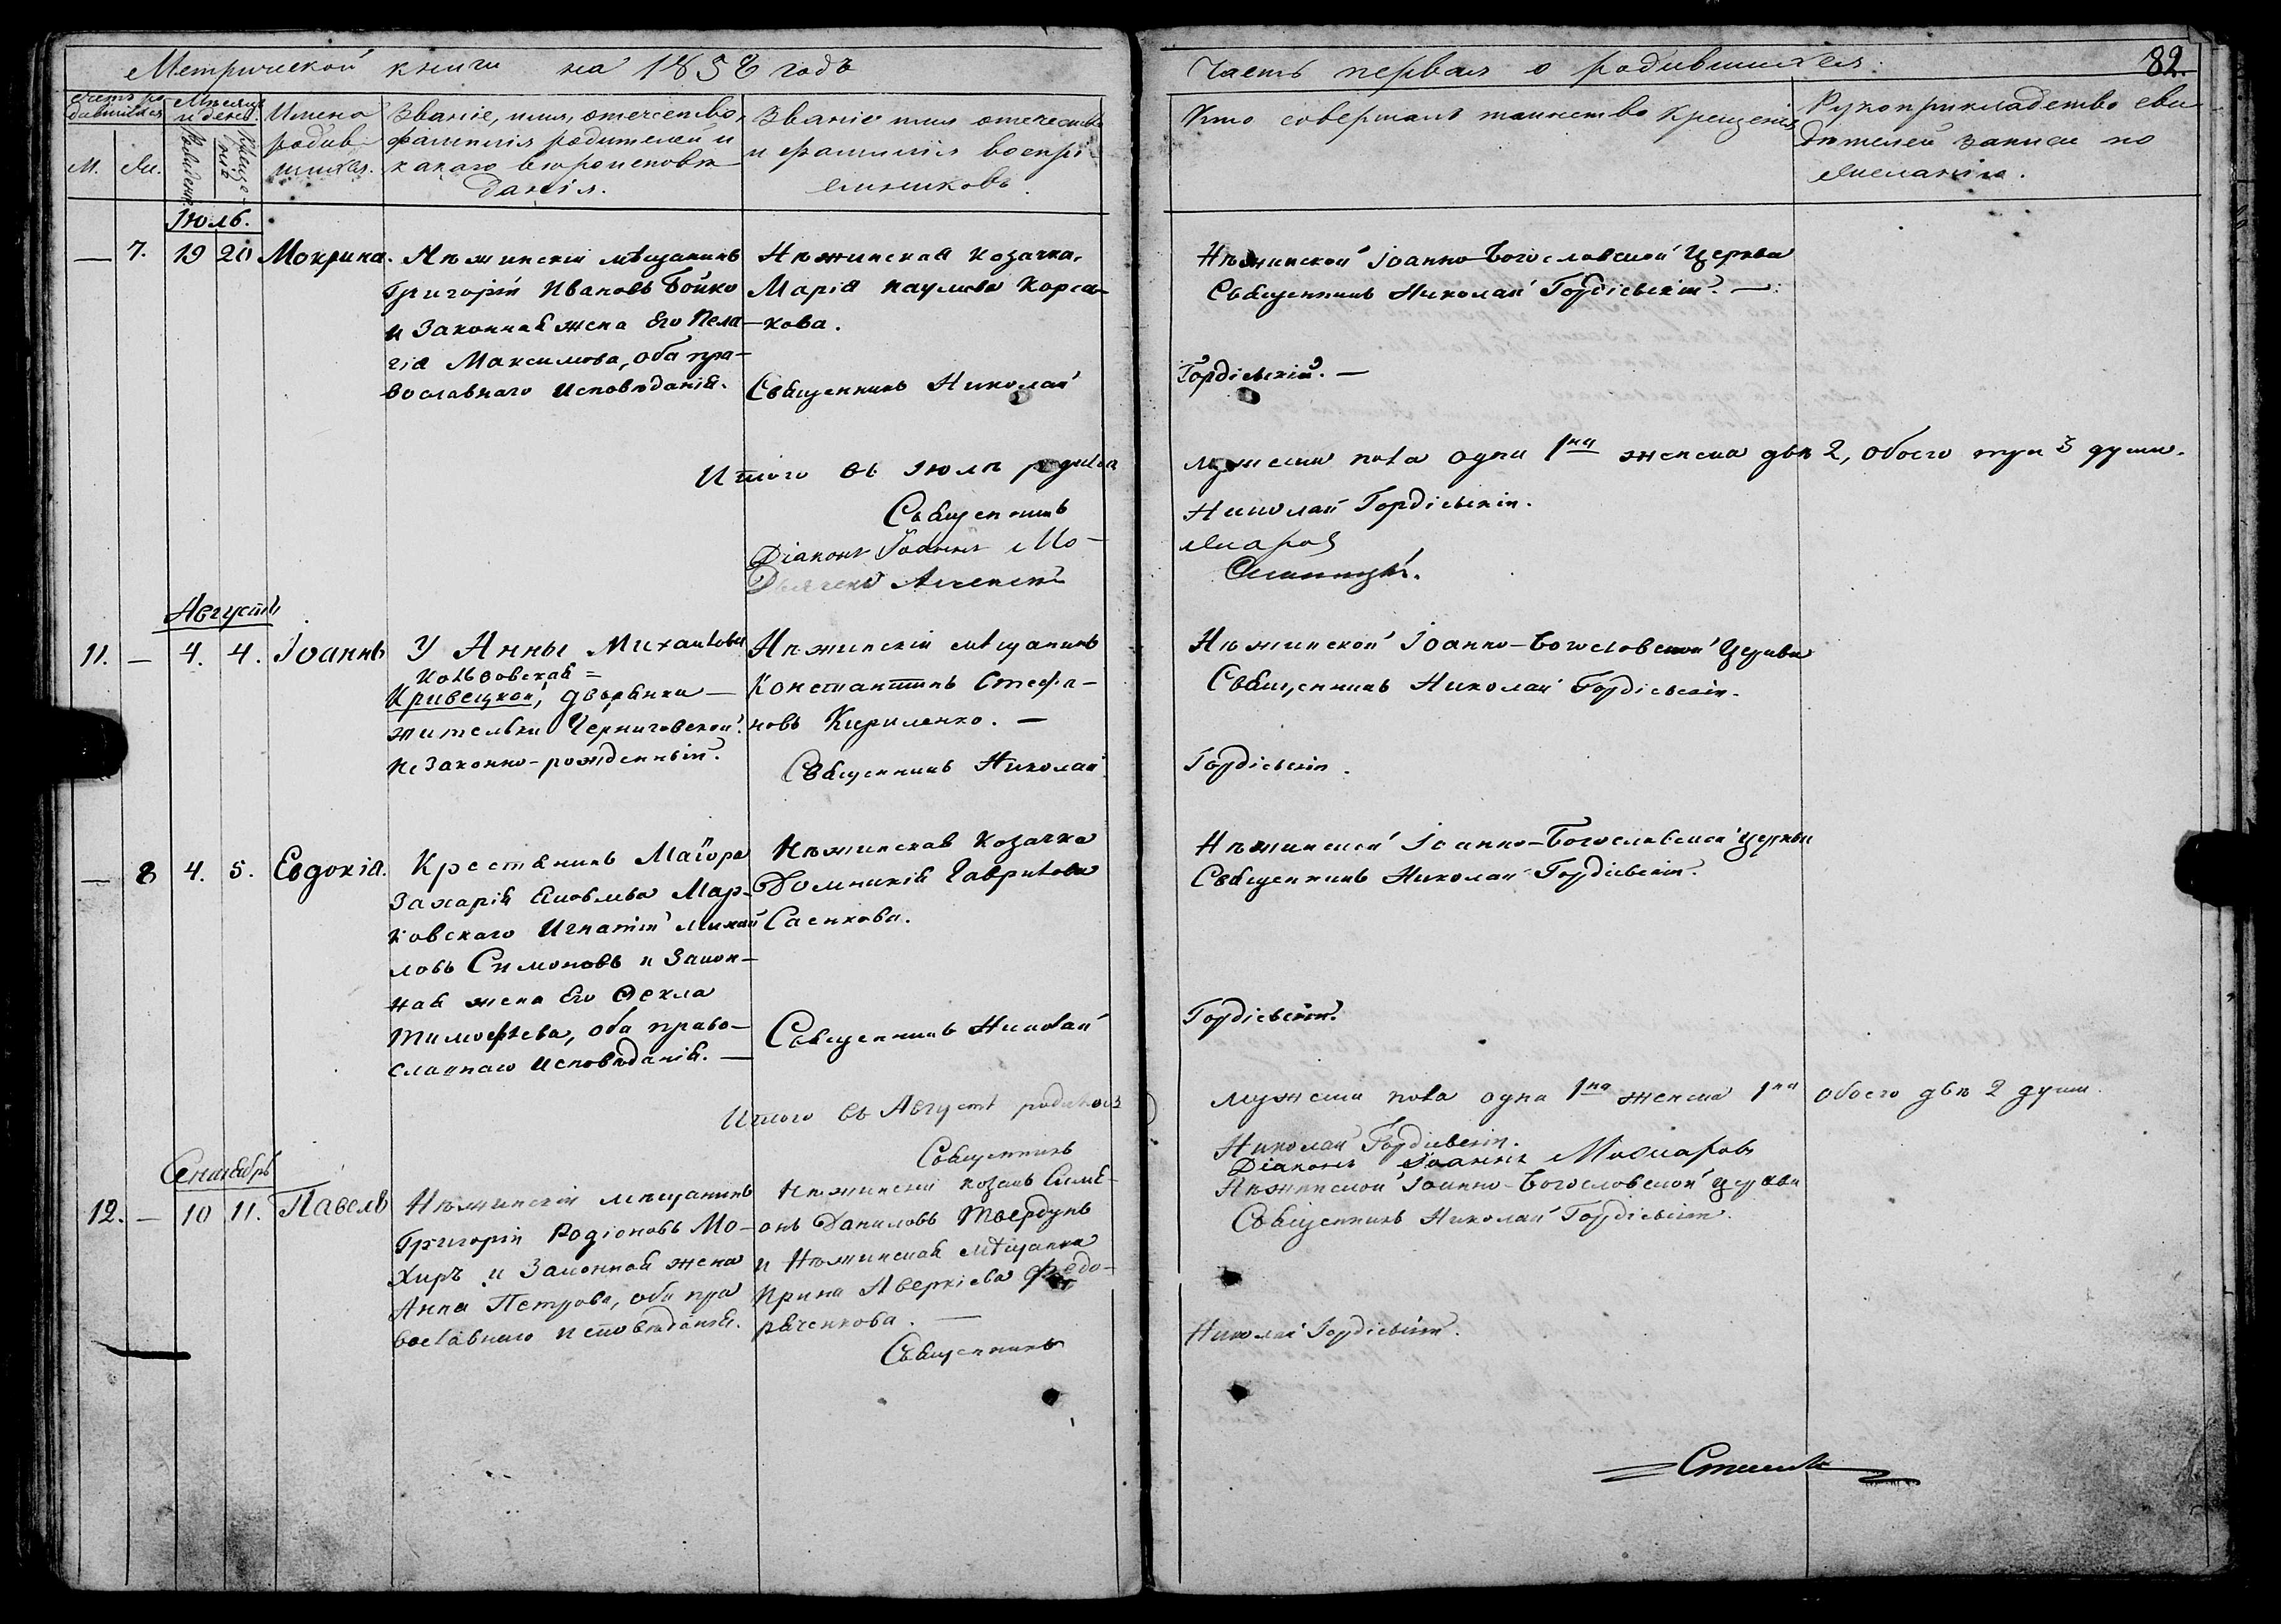 Метрической книги на 1858 годъ
Часть первая о родившихся.
82.
Счетъ ро-
дившихся
Мѣсяцъ
и день.
Имена
родив-
шихся.
Званіе, имя, отечество,
фамилія родителей и
какого вѣроисповѣ-
данія.
Званіе имя отечество
и фамилія воспрі-
емниковъ.
Кто совершалъ таинство крещенія
Рукоприкладство сви
дѣтелей записи по
желанію.
М.
Же.
рожденія
креще-
нія
Іюль.
— 7. 19 20 Мокрина.
Нѣжинскій мѣщанинъ
Григорій Ивановъ Бойко
и Законная жена Его Пела-
гія Максимова, оба пра-
вославнаго Исповѣданія.
Нѣжинская козачка,
Марія Паулова Корса-
кова.
Священникъ Николай
Нѣжинской Іоанно-Богословской Церкви
Священникъ Николай Гордіевскій. —
Гордіевскій. —
Итого въ Іюлѣ родилось
мужеска пола одна 1на женска двѣ 2, обоего три 3 души.
Священникъ
Николай Гордіевскій.
Діаконъ Іоаннъ Мо-
жаров
Дьячекъ
Августъ
11. — 4. 4. Іоаннъ
У Анны Михаиловы
Кривецкой, дворянки —
жительки Черниговской.
Незаконно-рожденный.
Нѣжинскій мѣщанинъ
Константинъ Стефа-
новъ Кириленко. —
Священникъ Николай
Нѣжинской Іоанно-Богословской Церкви
Священникъ Николай Гордіевскій.
Гордіевскій.
— 8 4. 5. Евдокія.
Крестянинъ Маіора
Захарія Яковлева Мар-
ковскаго Игнатій Михай
ловъ Симоновъ и Закон-
ная жена Его Ѳекла
Тимофѣева, оба право-
славнаго Исповѣданія. —
Нѣжинская Козачка
Домникія Гаврилова
Саенкова.
Священникъ Николай
Нѣжинской Іоанно-Богословской Церкви
Священникъ Николай Гордіевскій.
Гордіевскій.
Итого въ Августѣ родилось
мужеска пола одна 1на женска 1на обоего двѣ 2 души
Священникъ
Николай Гордіевскій.
Діаконъ Іоаннъ Можаровъ
Сентябрь
12. — 10 11. Павелъ
Нѣжинскій мѣщанинъ
Григорій Родіоновъ Мо-
хиръ и Законная жена
Анна Петрова, оба пра
вославнаго Исповѣданія.
Нѣжинскій козакъ Симе-
онъ Даниловъ Твердунъ
и Нѣжинская мѣщанка
Ирина Аверкіева Федо-
рѣченкова. —
Священникъ
Нѣжинской Іоанно-Богословской церкви
Священникъ Николай Гордіевскій.
Николай Гордіевскій.